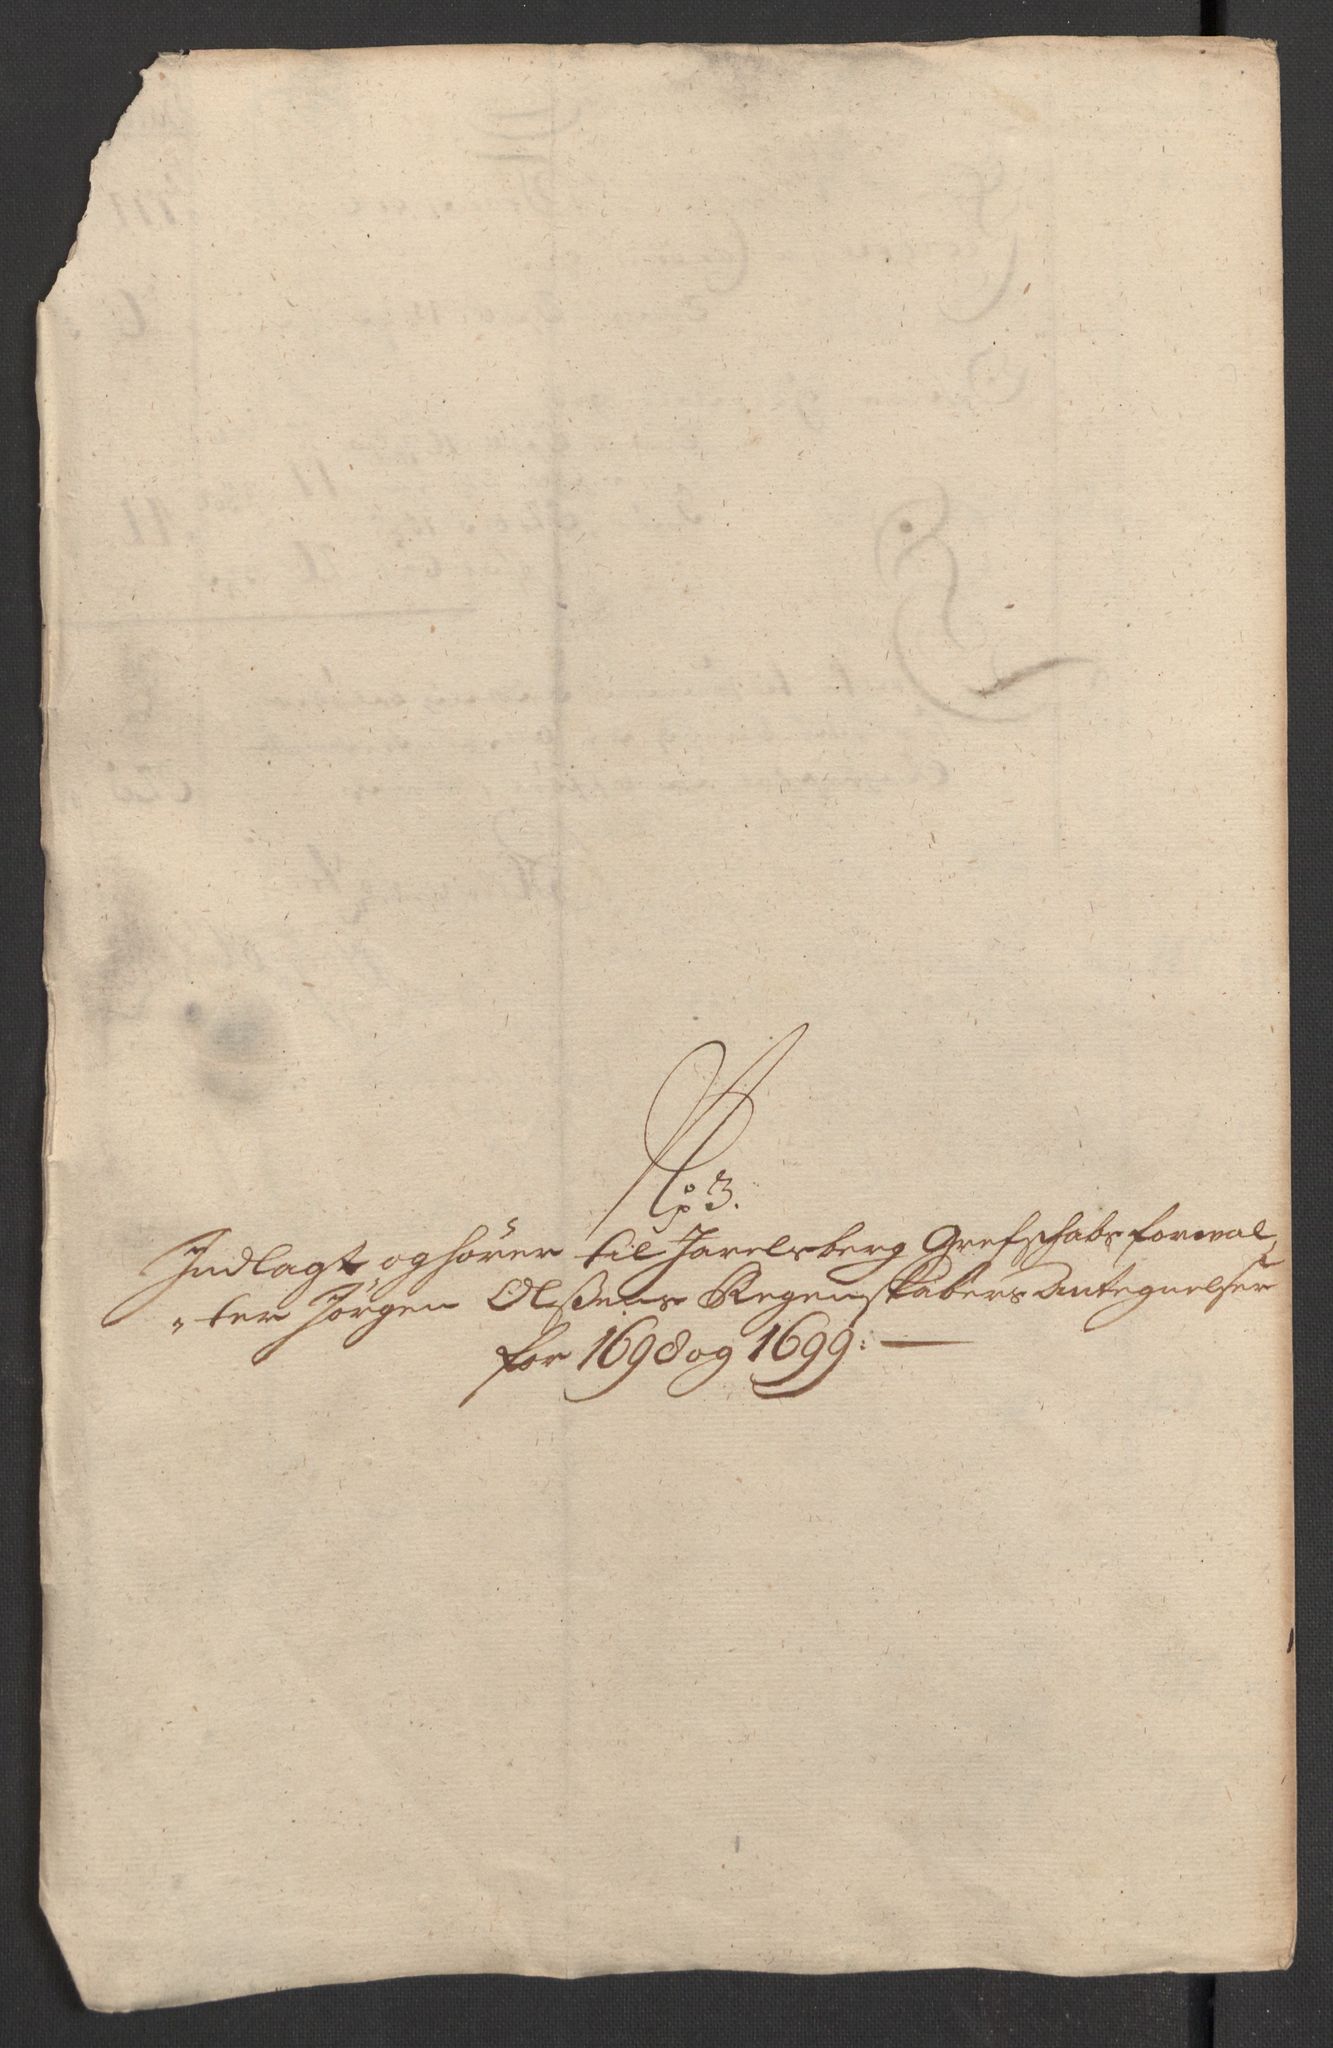 No 3.
Indlagt, og hører til Jarelsberg Grefschabs forwal,
„ter Jørgen Olßens Regenskabers Antegnelser
for 1698 og 1699: